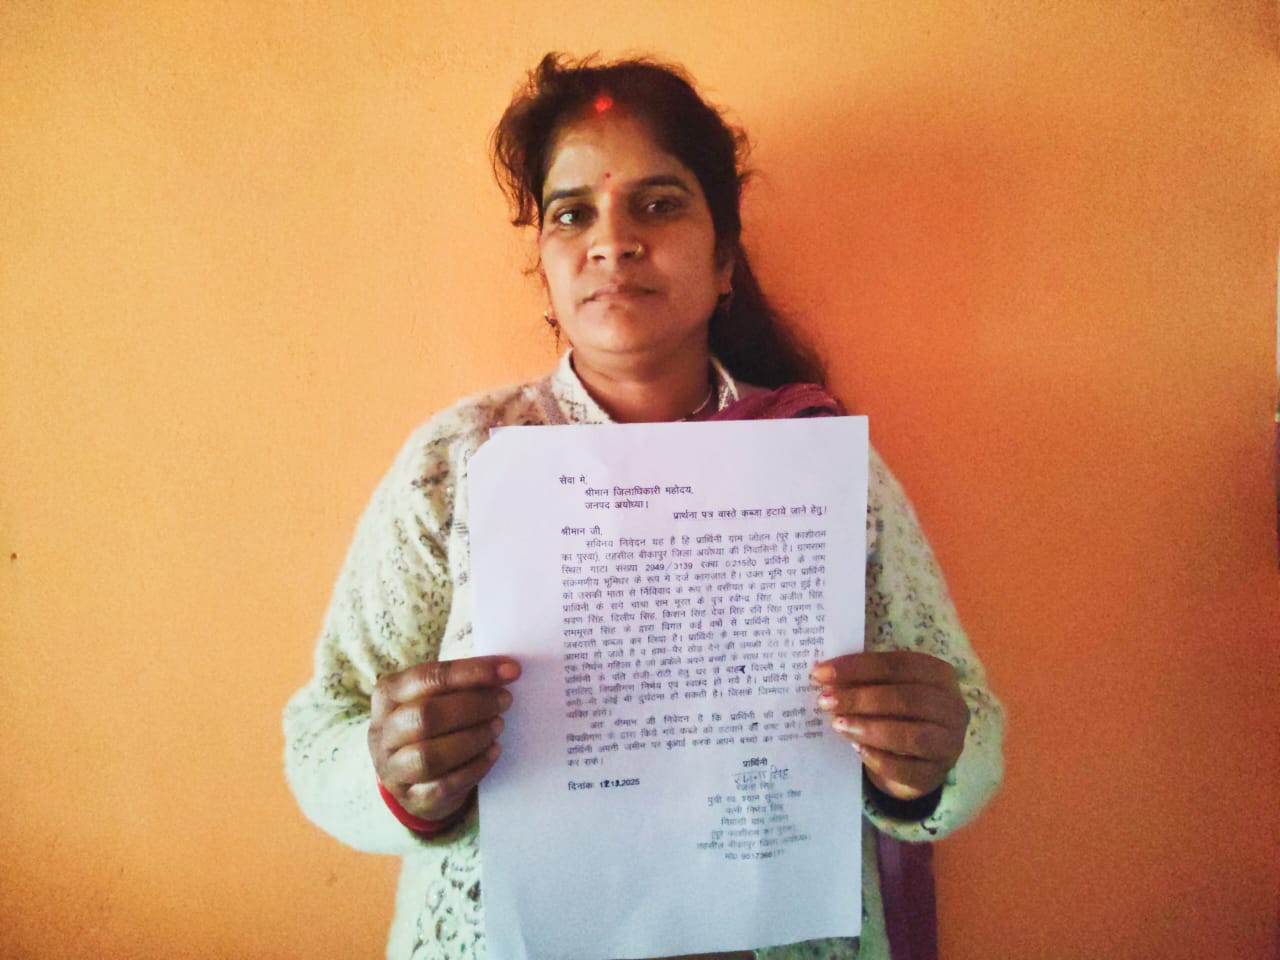 सेवा मे,
श्रीमान जिलाधिकारी महोदय,
जनपद अयोध्या।
प्रार्थना पत्र वास्ते कब्जा हटाये जाने हेतु।
श्रीमान जी,
सविनय निवेदन यह है हि प्रार्थिनी ग्राम जोहन (पूरे काशीराम
का पुरवा), तहसील बीकापुर जिला अयोध्या की निवासिनी है। ग्रामसभा
स्थित गाटा संख्या 2949/3139 रकबा 0.215हे0 प्रार्थिनी के नाम
संक्रमणीय भूमिधर के रूप मे दर्ज कागजात है। उक्त भूमि पर प्रार्थिनी
को उसकी माता से निर्विवाद के रूप से वसीयत के द्वारा प्राप्त हुई है।
प्रार्थिनी के सगे चाचा राम मूरत के पुत्र रवीन्द्र सिंह, अजीत सिंह,
श्रवण सिंह, दिलीप सिंह, किशन सिंह देवा सिंह रवि सिंह पुत्रगण
राममूरत सिंह के द्वारा विगत कई वर्षो से प्रार्थिनी की भूमि पर
जबरदस्ती कब्जा कर लिया है। प्रार्थिनी के मना करने पर फौजदारी
आमदा हो जाते है व हाथ-पैर तोड़ देने की धमकी देते है। प्रार्थिनी
एक निर्धन महिला है जो अकेले अपने बच्चों के साथ घर पर रहती है।
प्रार्थिनी के पति रोजी-रोटी हेतु घर से बाहर दिल्ली में रहते
इसलिए विपक्षीगण निर्भय एवं स्वछंद हो गये है। प्रार्थिनी के
कभी-भी कोई भी दुर्घटना हो सकती है। जिसके जिम्मेदार उपरोक्त
व्यक्ति होंगे।
अतः श्रीमान जी निवेदन है कि प्रार्थिनी की खतौनी पर
विपक्षीगण के द्वारा किये गये कब्जे को हटवाने की कष्ट करें। ताकि
प्रार्थिनी अपनी जमीन पर बुआई करके अपने बच्चों का पालन-पोषण
कर सके।
प्रार्थिनी
दिनांकः 2025
सिंह
पुत्री स्व. श्याम सुन्दर सिंह
पत्नी निर्भय सिंह
निवासी ग्राम जोहन
(पूरे काशीराम का पुरवा)
तहसील बीकापुर जिला अयोध्या।
मो0